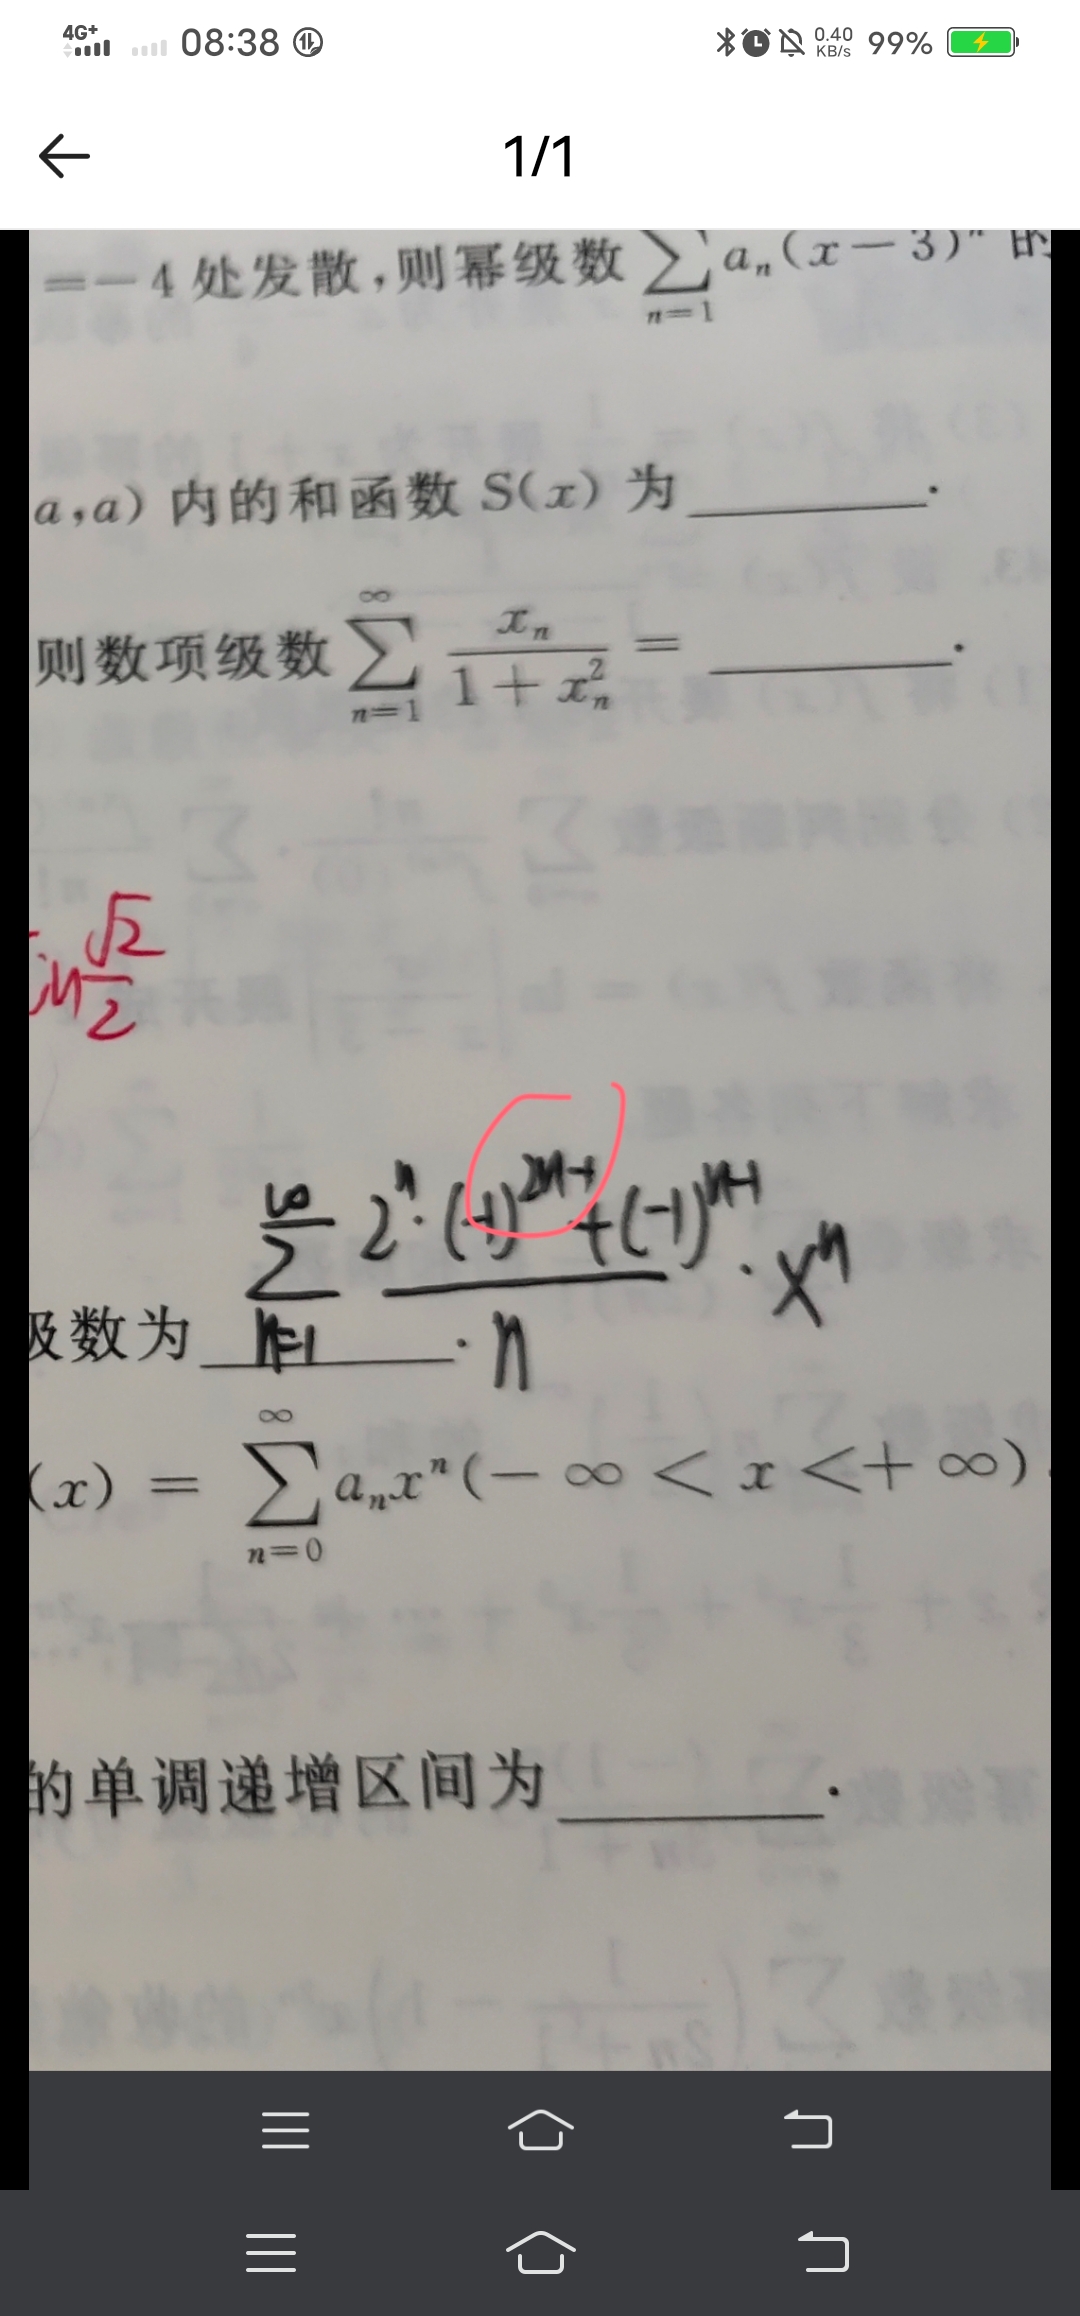 4G+ 08:38 0.40 KB/s 99%
1/1
=-4 处发散,则幂级数 \sum_{n=1} a_n(x-3)^n 的
a,a) 内的和函数 S(x) 为______.
则数项级数 \sum_{n=1}^{∞} \frac{x_n}{1+x_n^2} = ______.
in \frac{√2}{2}
\sum_{n=1}^{∞} \frac{2^n·(-1)^{2n-1}+(-1)^{n-1}}{n}·x^n
级数为______.
(x) = \sum_{n=0}^{∞} a_n x^n (-∞ < x < +∞)
的单调递增区间为______.